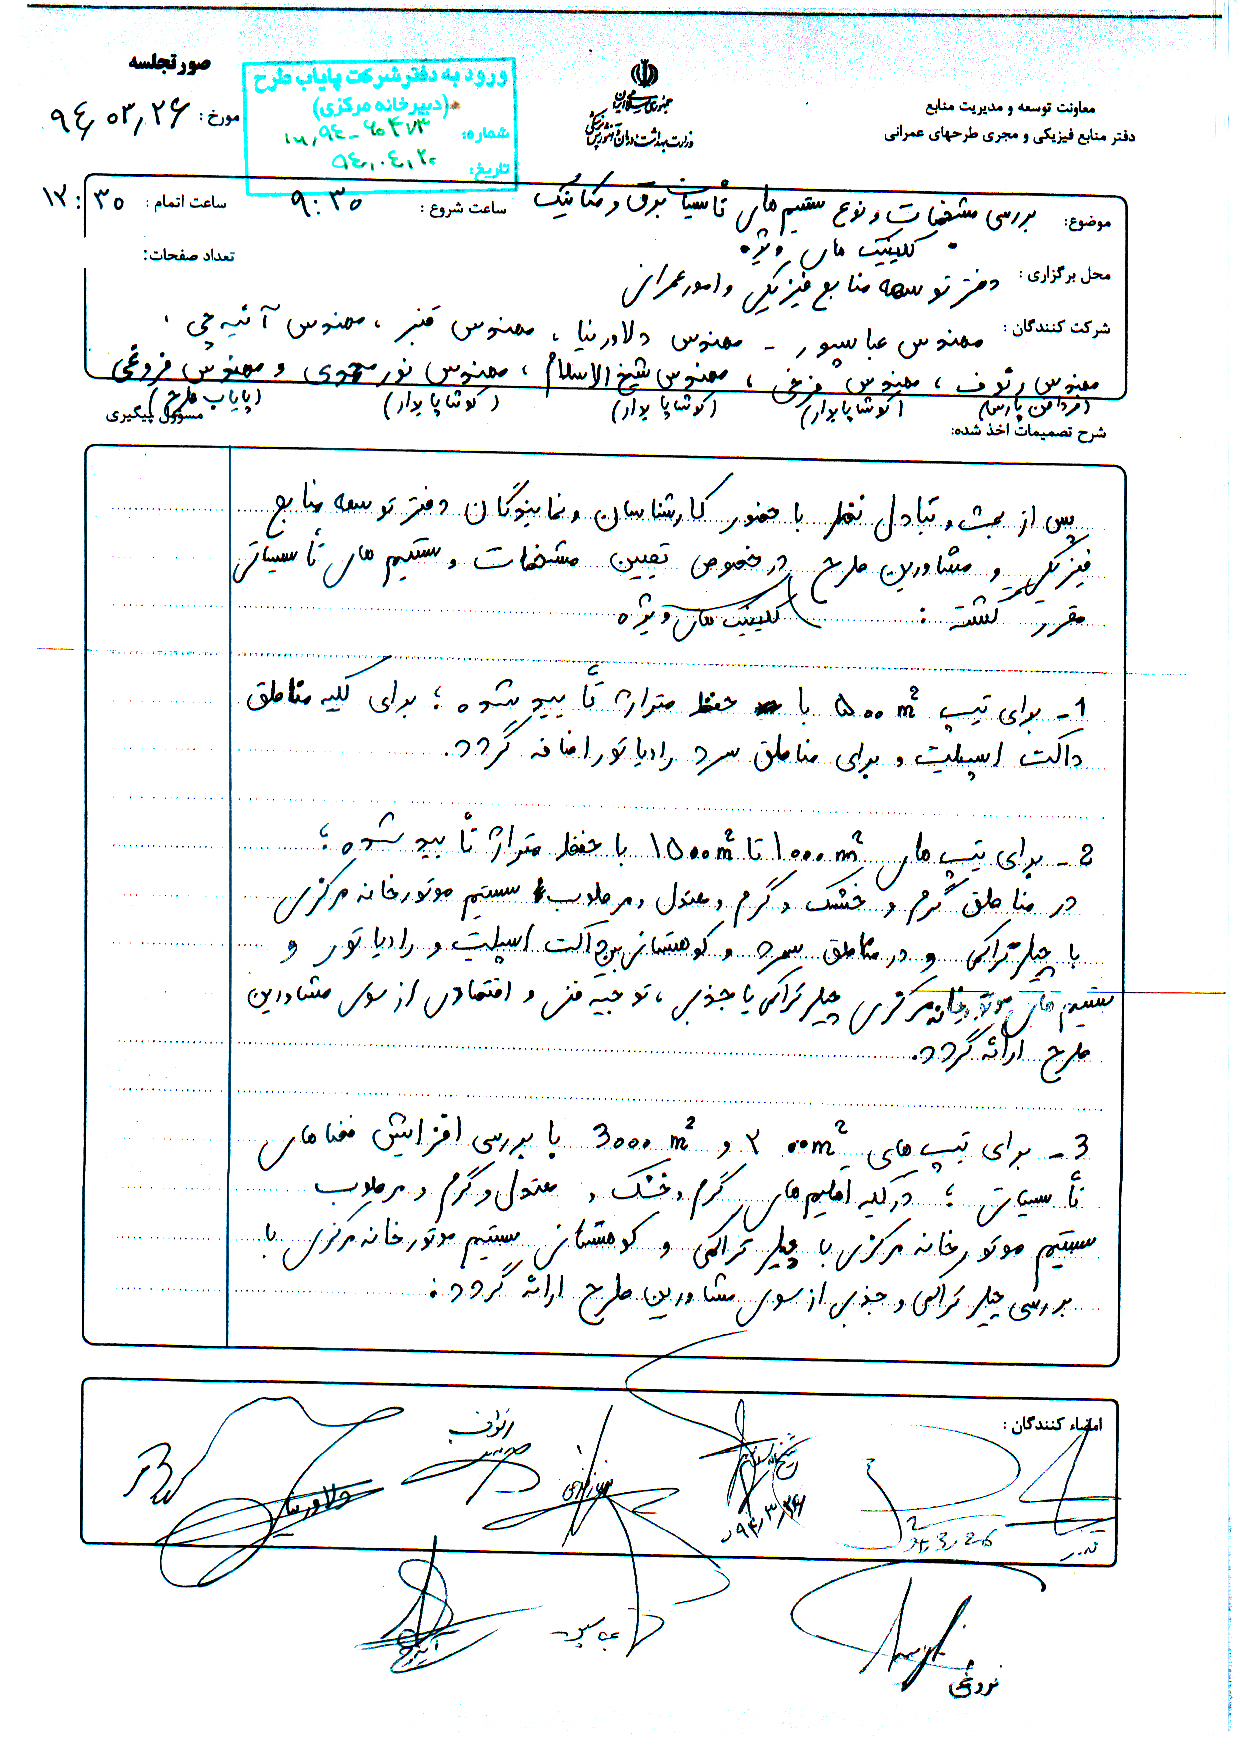 صورتجلسه
مورخ : ۹۴٫۰۳٫۲۶
ورود به دفتر شرکت پایاب طرح
(دبیرخانه مرکزی)
شماره:
تاریخ: ۹۴٫۰۴٫۲۰
جمهوری اسلامی ایران
وزارت بهداشت درمان و آموزش پزشکی
معاونت توسعه و مدیریت منابع
دفتر منابع فیزیکی و مجری طرحهای عمرانی
موضوع: بررسی مشخصات و نوع سیستم های تأسیسات برق و مکانیک
کلینیک های ویژه
ساعت شروع : ۹:۳۰
ساعت اتمام : ۱۲:۳۰
تعداد صفحات:
محل برگزاری : دفتر توسعه منابع فیزیکی و امور عمرانی
شرکت کنندگان : مهندس عباسپور - مهندس دلاورنیا ، مهندس قنبر ، مهندس آئینه چی ،
مهندس رئوف ، مهندس فرخی ، مهندس شیخ الاسلام ، مهندس نورمحمدی و مهندس فروغی
(کوشا پایدار) (کوشا پایدار) (کوشا پایدار) (پایاب طرح)
شرح تصمیمات اخذ شده:
مسوول پیگیری
پس از بحث و تبادل نظر با حضور کارشناسان و نمایندگان دفتر توسعه منابع
فیزیکی و مشاورین طرح در خصوص تعیین مشخصات و سیستم های تأسیساتی
کلینیک های ویژه مقرر گشته :
1- برای تیپ ۵۰۰ m² با حفظ متراژ تأیید شده ؛ برای کلیه مناطق
داکت اسپلیت و برای مناطق سرد رادیاتور اضافه گردد.
2- برای تیپ های ۱۰۰۰ m² تا ۱۵۰۰ m² با حفظ متراژ تأیید شده ؛
در مناطق گرم و خشک و گرم و معتدل و مرطوب سیستم موتورخانه مرکزی
با چیلر تراکمی و در مناطق سرد و کوهستانی داکت اسپلیت و رادیاتور و
سیستم های موتورخانه مرکزی چیلر تراکمی یا جذبی ، توجیه فنی و اقتصادی از سوی مشاورین
طرح ارائه گردد.
3- برای تیپ های ۲۰۰۰ m² و 3۰۰۰ m² با بررسی افزایش فضاهای
تأسیساتی ؛ در کلیه اقلیم های گرم و خشک و معتدل و گرم و مرطوب
سیستم موتورخانه مرکزی با چیلر تراکمی و کوهستانی سیستم موتورخانه مرکزی با
بررسی چیلر تراکمی و جذبی از سوی مشاورین طرح ارائه گردد.
امضاء کنندگان :
رئوف
دلاورنیا
شیخ الاسلام
۹۴٫۳٫۲۶
عباسپور
فروغی